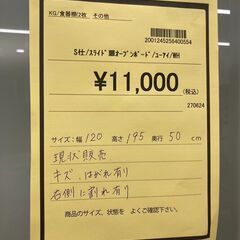 KG/食器棚/2枚 その他
2001245256400554
S仕/スライド扉オープンボード/ユーアイ/WH
¥11,000
270624
サイズ:幅 120 高さ 195 奥行 50 cm
現状販売
キズ、はがれ有り
右側に割れ有り
商品のサイズ、状態を よくご確認下さい。